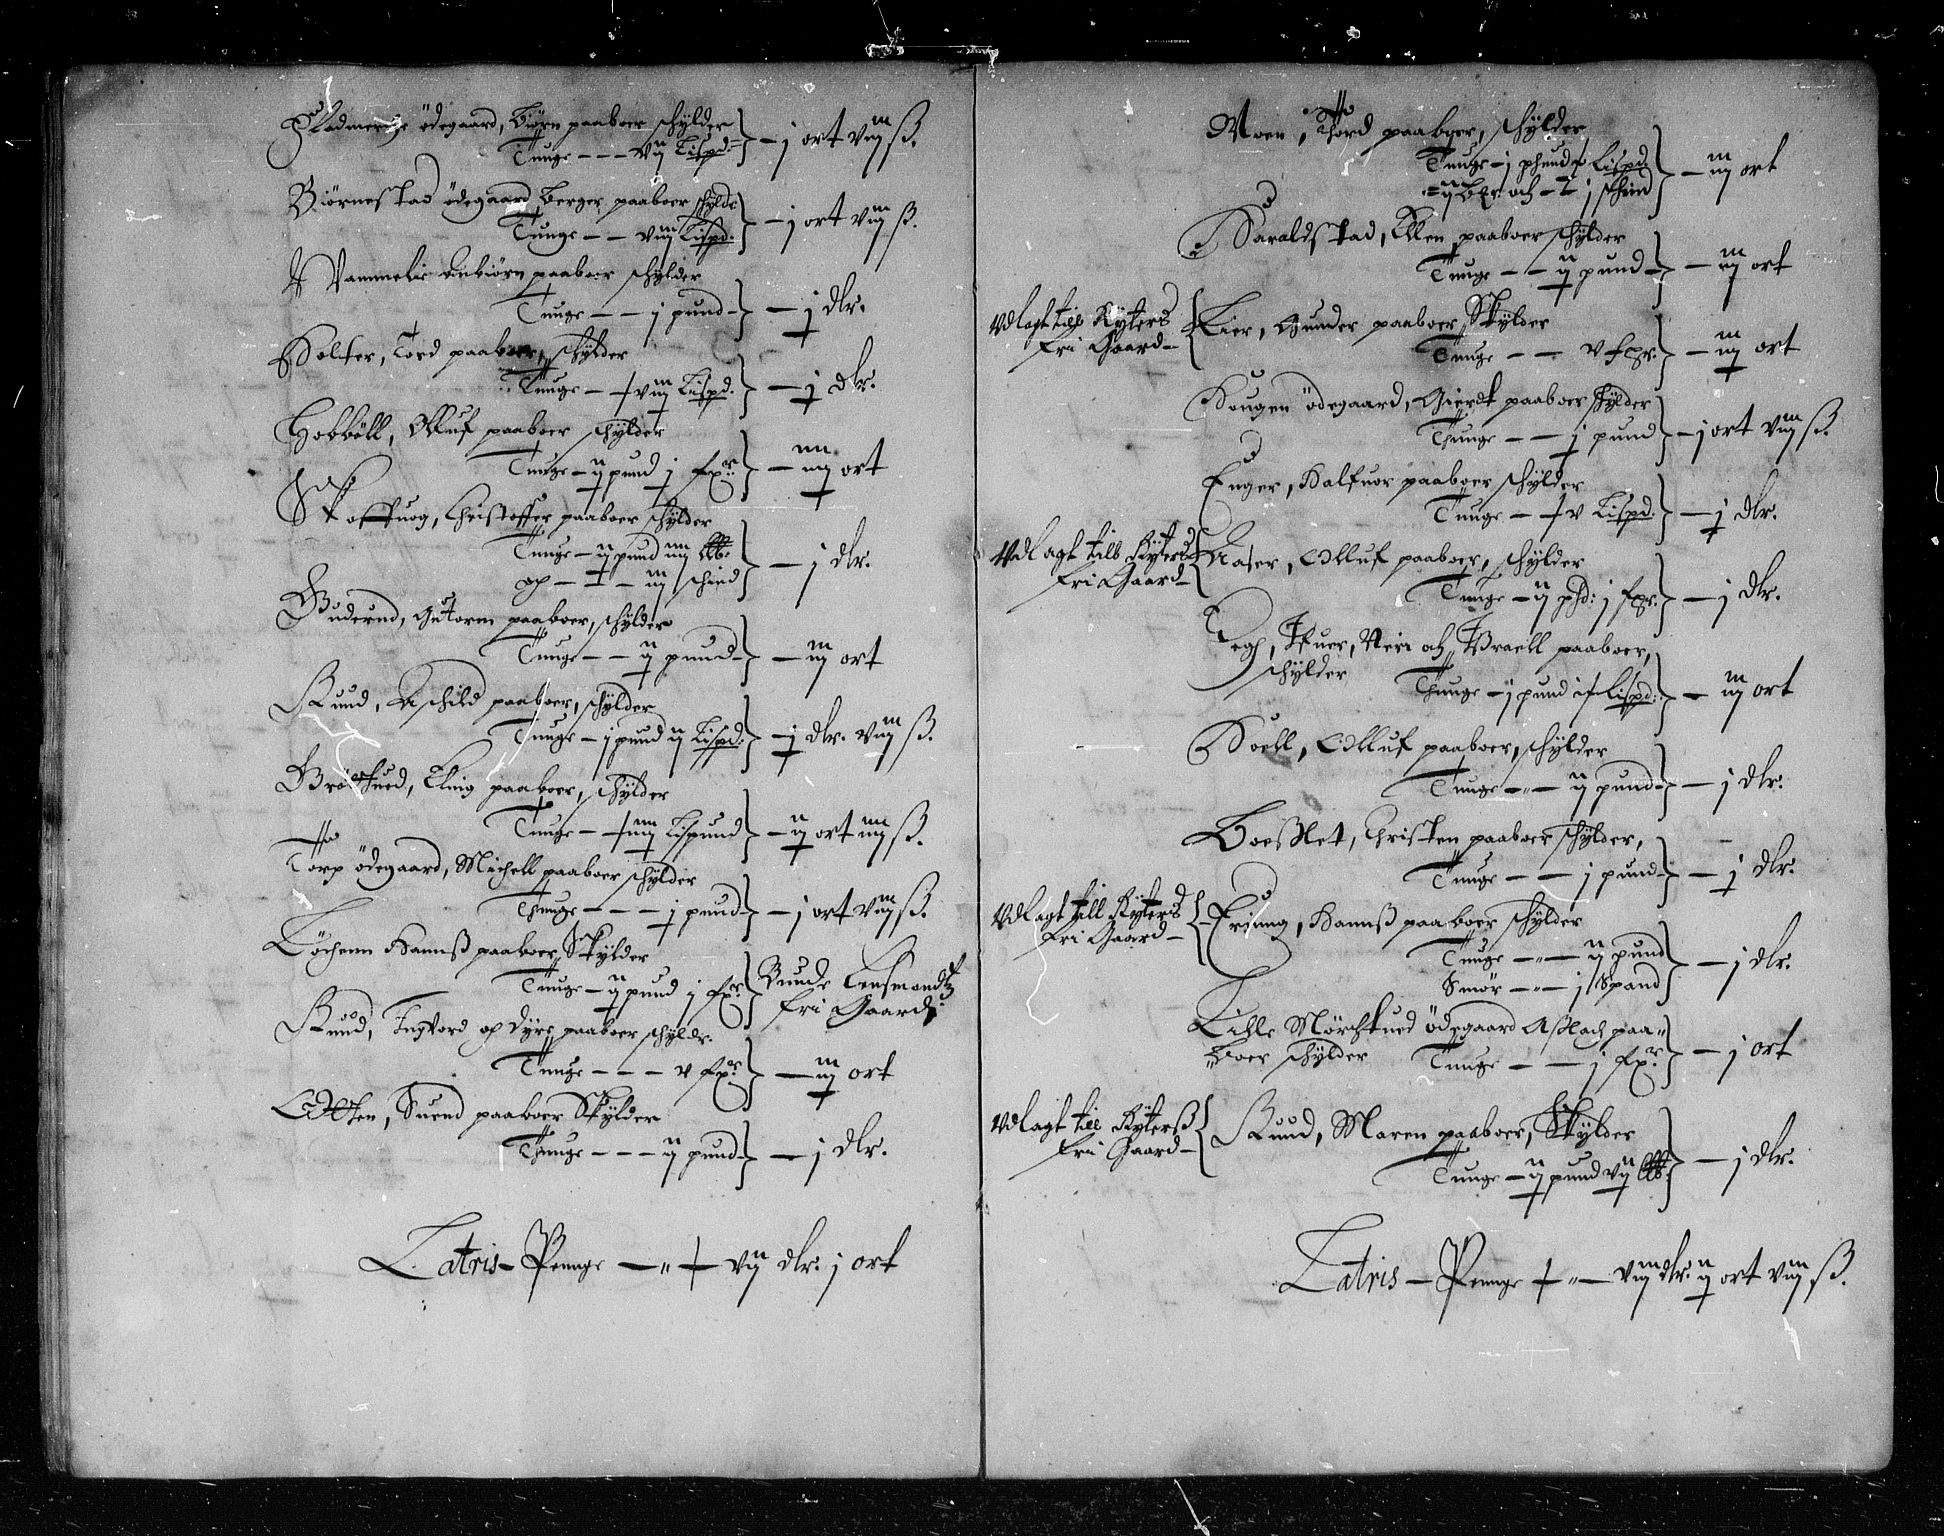 ödegaard, Biørn paaboer schylder
Tunge - - - vij Lispd: - j ort viij ß.
Biørnestad ödegaard, Berger paaboer schylder
Tunge - - viij Lispd. - j ort viij ß.
Vammelie Anbiörn paaboer schylder
Tunge - - j pund - j dlr.
Holter, Tord paaboer, schylder
Tunge - viij Lispd. - j dlr.
Hobböll, Olluf paaboer schylder
Tunge - ij pund j fxr - iiij ort
Skoffuog, Christoffer paaboer schylder
Tunge - ij pund iiij
och - iij schind - j dlr.
Guderud, Gutorm paaboer, schylder
Tunge - - ij pund - iij ort
Ruud, Aschild paaboer, schylder
Tunge - j pund ij Lispd: - j dlr. viij ß.
Elling paaboer, schylder
Tunge - iiij Lispund - ij ort iiij ß.
Torp ödegaard, Michell paaboer schylder
Thunge - - - j pund - j ort viij ß.
Löchenn Hannß paaboer Skylder
Tunge - ij pund j fxr Bunde Lensmandtz
fri Gaard:
Ruud, Ingvord op Dyre, paaboer schyldr.
Tunge - - - v fxr - iij ort
Suend paaboer Skylder
Thunge - - - ij pund - j dlr.
Latris - Pennge - vij dlr. j ort
Moen, Thord paaboer, schylder
Tunge - j phund Lispd.
och j schin - iij ort
Haraldstad, Ellen paaboer schylder
Tunge - - ij pund - iij ort
Vdlagt till Ryters
fri Gaard -
Lier, Gunder paaboer Skylder
Tunge - - v fxr. - iij ort
Hougen ödegaard, Gierdt paaboer schylder
Thunge - - j pund - j ort viij ß.
Enger, Halfuor paaboer schylder
Tunge - v Lispd. - j dlr.
Vdlagt till Ryters
fri Gaard -
Aaser, Olluf paaboer, schylder
Tunge - ij phd: j fxr. - j dlr.
Neri och Braell paaboer,
schylder
Thunge - j pund Lispd: - iij ort
Hoell, Olluf paaboer, schylder
Tunge - " - ij pund - j dlr.
Christen paaboer schylder,
Tunge - - j pund - j dlr.
Vdlagt till Ryters
fri Gaard -
Hannß paaboer schylder
Tunge - " - ij pund
Smör - " - j Spand - j dlr.
Lille Mörchued ödegaard Aßlach paa"
"boer schylder Tunge - - j fxr - j ort
Vdlagt till Ryterß
fri Gaard -
Ruud, Maren paaboer, Skylder
Tunge - ij pund vij - j dlr.
Latris - Pennge - " - viij dlr. ij ort viij ß.